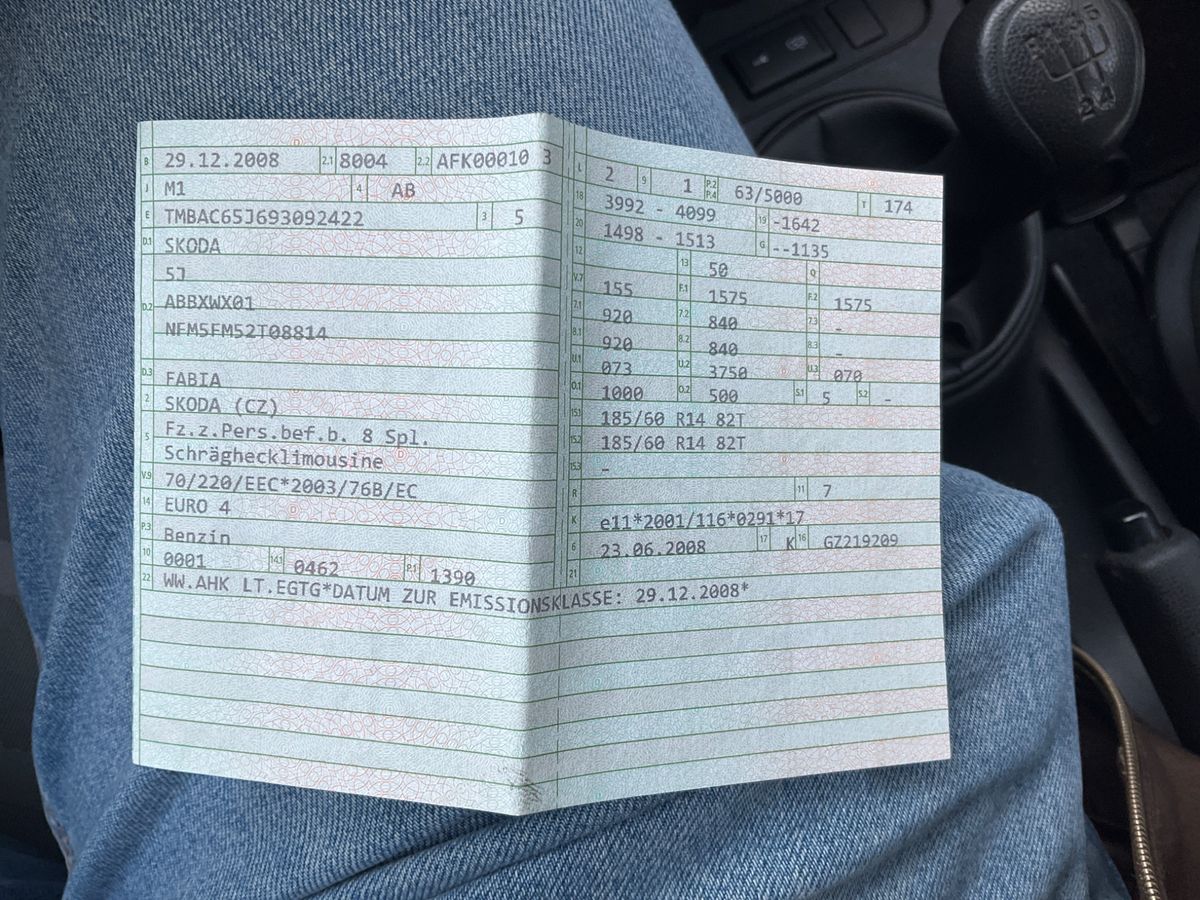 B 29.12.2008 2.1 8004 2.2 AFK00010 3
J M1 4 AB
E TMBAC65J693092422 3 5
D.1 SKODA
5J
D.2 ABBXWX01
NFM5FM52T08814
D.3 FABIA
2 SKODA (CZ)
5 Fz.z.Pers.bef.b. 8 Spl.
Schräghecklimousine
V.9 70/220/EEC*2003/76B/EC
14 EURO 4
P.3 Benzin
10 0001 14.1 0462 P.1 1390
22 WW.AHK LT.EGTG*DATUM ZUR EMISSIONSKLASSE: 29.12.2008*
L 2 9 1 P.2 P.4 63/5000 T 174
18 3992 - 4099 19 -1642
20 1498 - 1513 G --1135
12 13 50 Q
V.7 155 F.1 1575 F.2 1575
7.1 920 7.2 840 7.3 -
8.1 920 8.2 840 8.3 -
U.1 073 U.2 3750 U.3 070
O.1 1000 O.2 500 S.1 5 S.2 -
15.1 185/60 R14 82T
15.2 185/60 R14 82T
15.3 -
R 11 7
K e11*2001/116*0291*17
6 23.06.2008 17 K 16 GZ219209
21
5
2 4